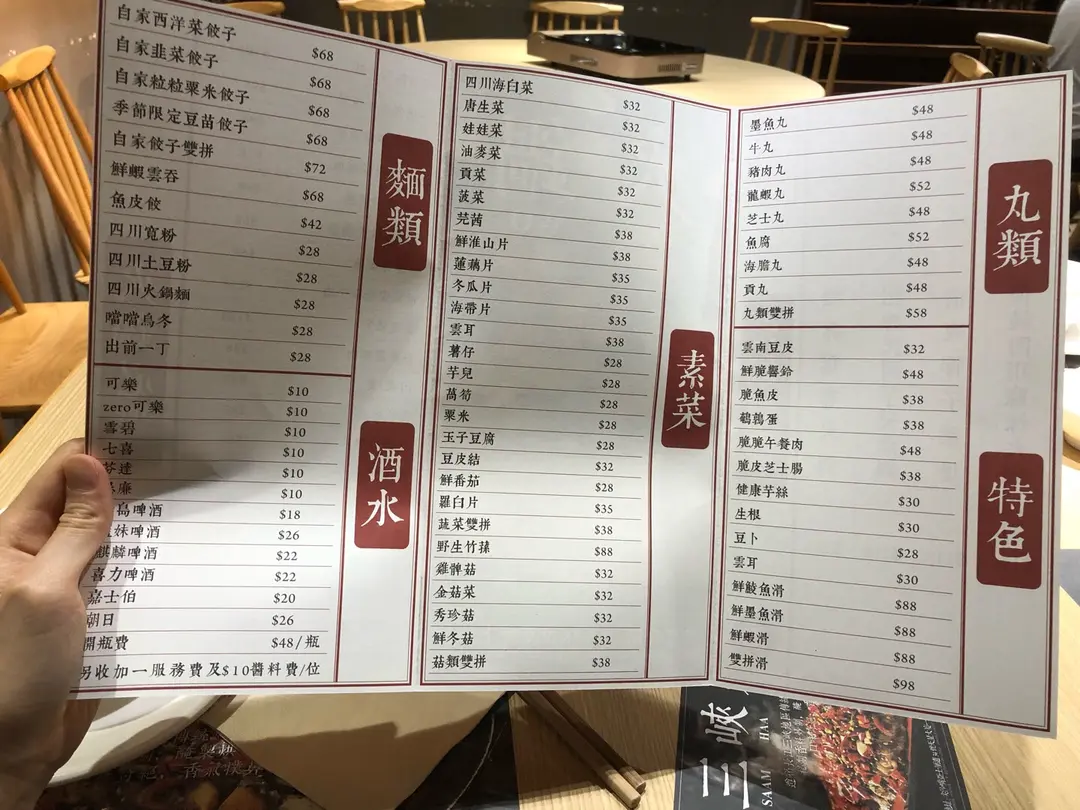 自家西洋菜餃子 $68
自家韭菜餃子 $68
自家粒粒粟米餃子 $68
季節限定豆苗餃子 $68
自家餃子雙拼 $72
鮮蝦雲吞 $68
魚皮餃 $42
四川寬粉 $28
四川土豆粉 $28
四川火鍋麵 $28
噹噹烏冬 $28
出前一丁 $28
麵類
可樂 $10
zero可樂 $10
雪碧 $10
七喜 $10
芬達 $10
廉 $10
島啤酒 $18
妹啤酒 $26
麒麟啤酒 $22
喜力啤酒 $22
嘉士伯 $20
朝日 $26
開瓶費 $48/瓶
另收加一服務費及$10醬料費/位
酒水
四川海白菜 $32
唐生菜 $32
娃娃菜 $32
油麥菜 $32
貢菜 $32
菠菜 $32
芫茜 $38
鮮淮山片 $38
蓮藕片 $35
冬瓜片 $35
海帶片 $35
雲耳 $38
薯仔 $28
芋兒 $28
萵筍 $28
粟米 $28
玉子豆腐 $28
豆皮結 $32
鮮番茄 $28
羅白片 $35
蔬菜雙拼 $38
野生竹蓀 $88
雞髀菇 $32
金菇菜 $32
秀珍菇 $32
鮮冬菇 $32
菇類雙拼 $38
素菜
墨魚丸 $48
牛丸 $48
豬肉丸 $48
龍蝦丸 $52
芝士丸 $48
魚腐 $52
海膽丸 $48
貢丸 $48
丸類雙拼 $58
丸類
雲南豆皮 $32
鮮脆響鈴 $48
脆魚皮 $38
鵪鶉蛋 $38
脆脆午餐肉 $48
脆皮芝士腸 $38
健康芋絲 $30
生根 $30
豆卜 $28
雲耳 $30
鮮鯪魚滑 $88
鮮墨魚滑 $88
鮮蝦滑 $88
雙拼滑 $98
特色
三峽
SAAM HAA